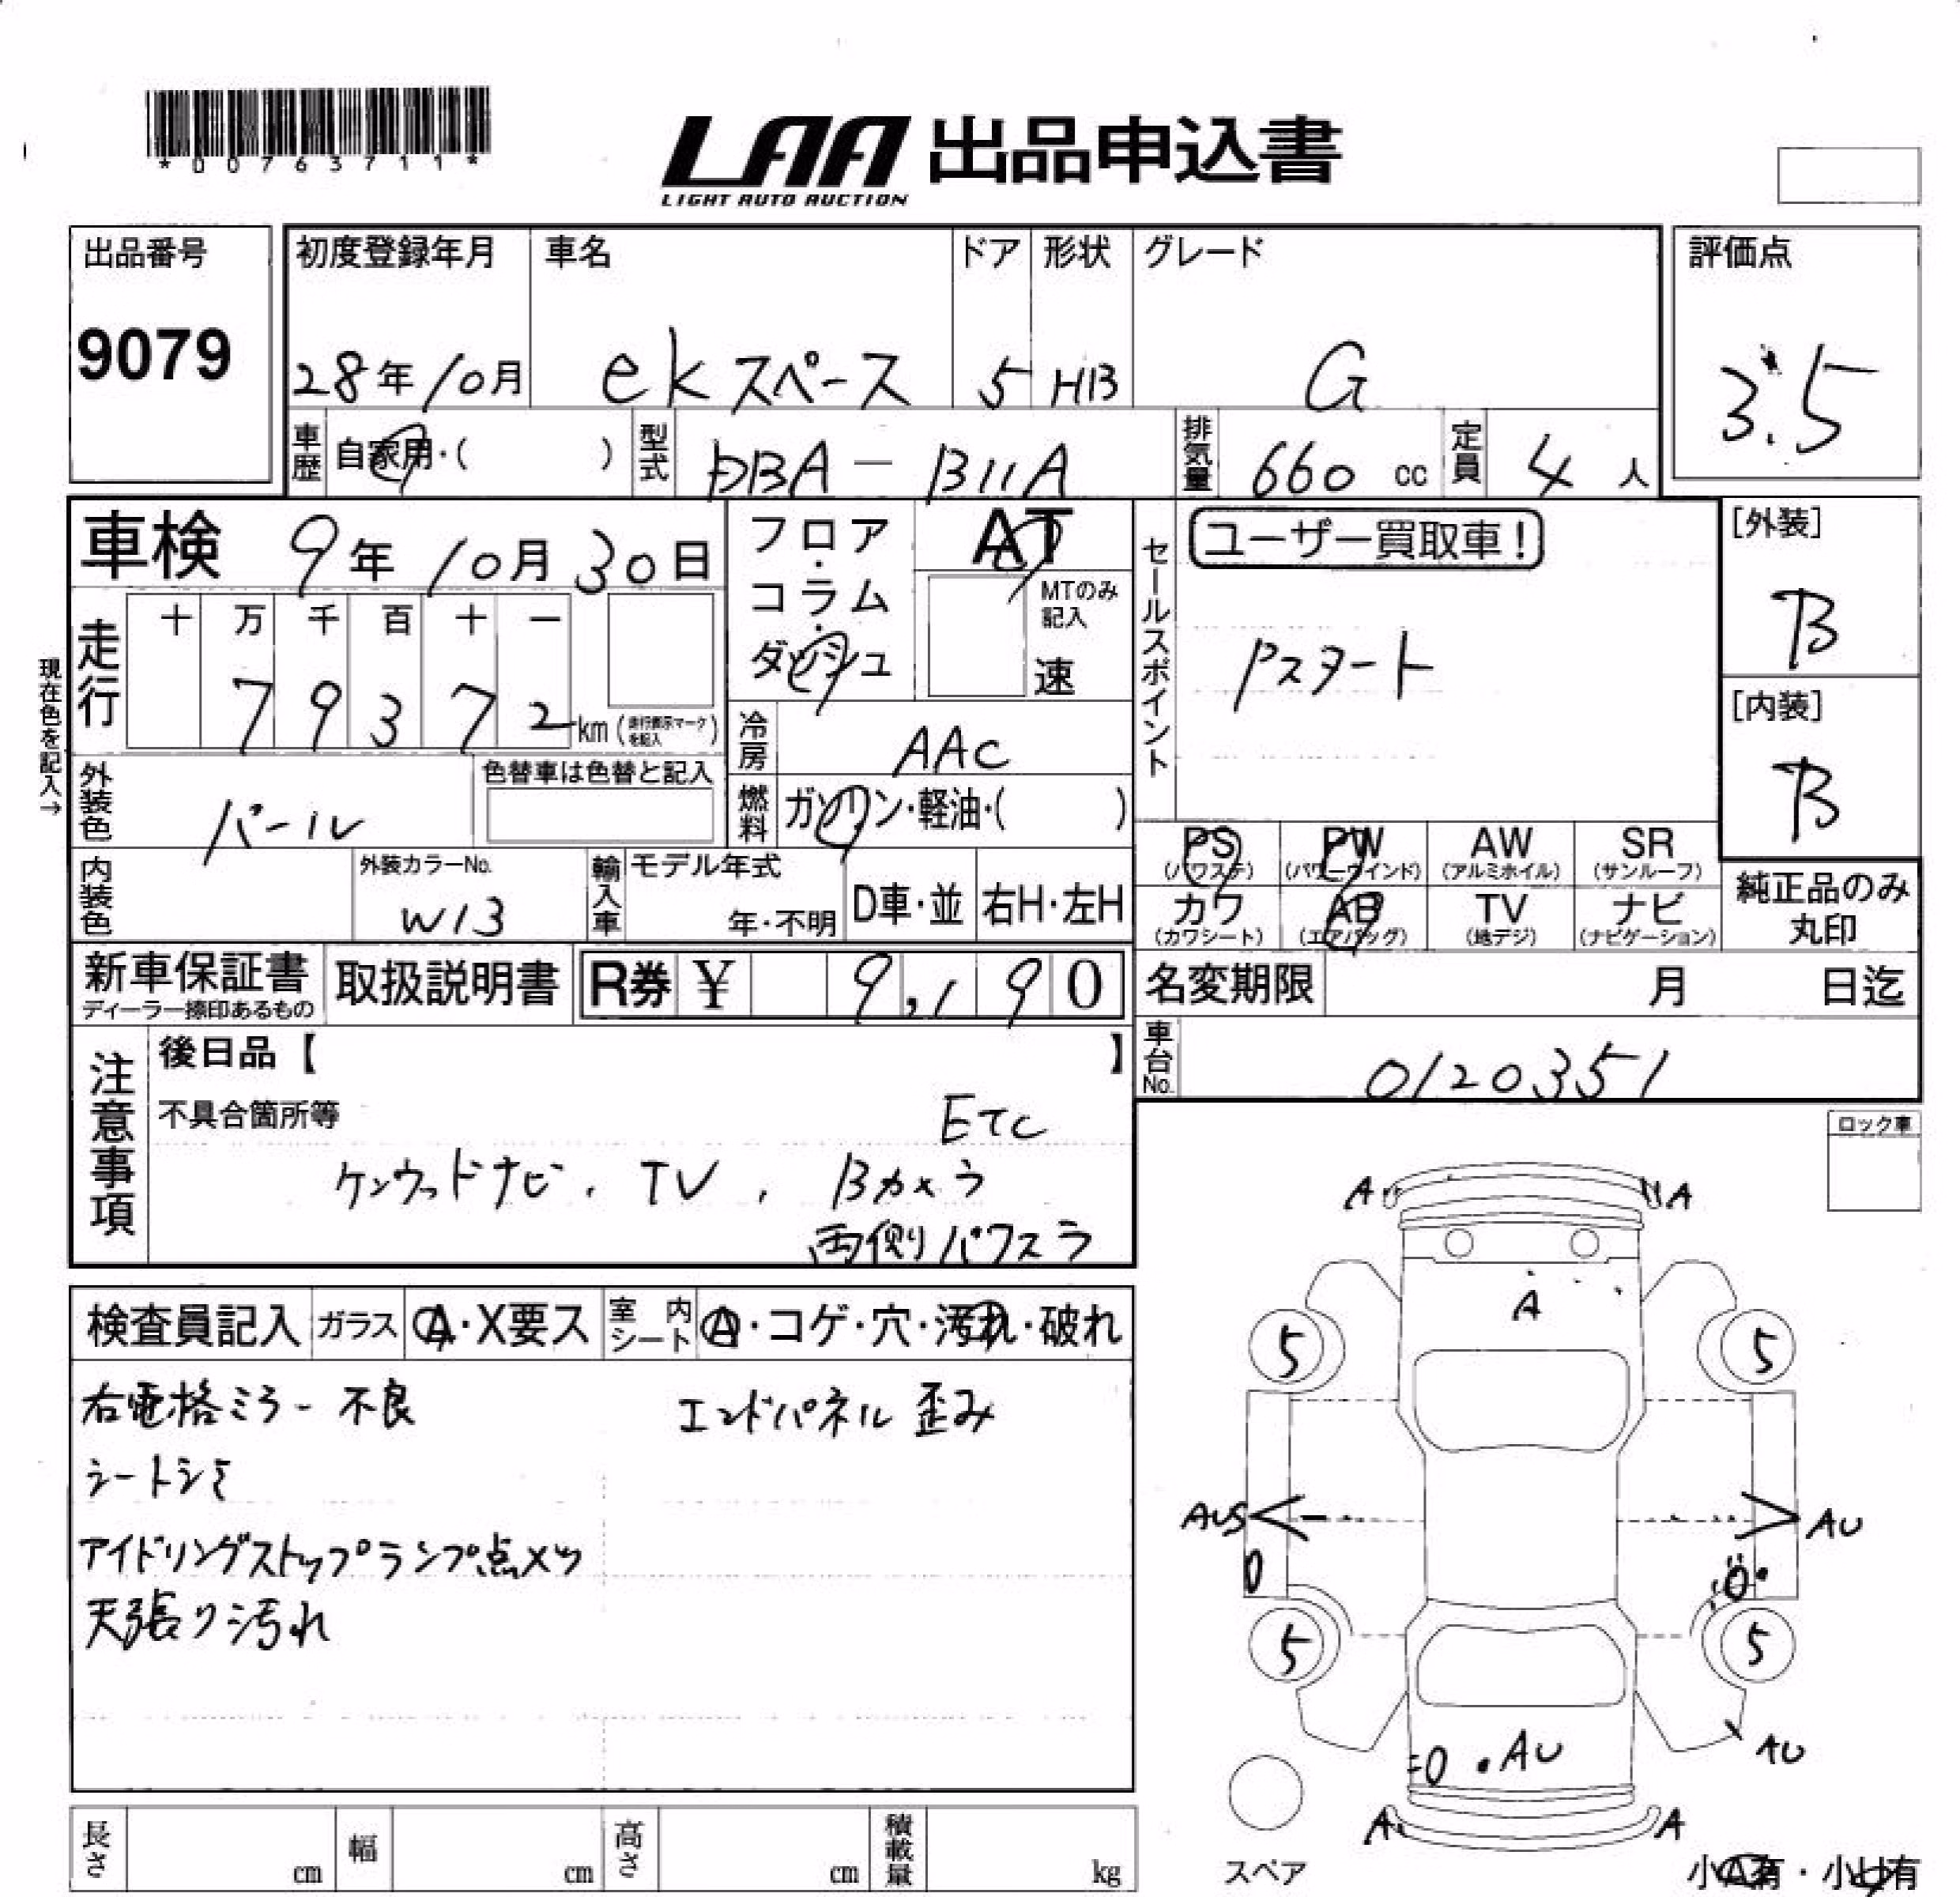 *00763711*
LAA 出品申込書
LIGHT AUTO AUCTION
出品番号
9079
初度登録年月
28年10月
車名
ekスペース
ドア
5
形状
HB
グレード
G
評価点
3.5
車歴
自家用・( )
型式
DBA-B11A
排気量
660 cc
定員
4 人
車検 9年10月30日
フロア・コラム・ダッシュ
AT
MTのみ記入
速
セールスポイント
ユーザー買取車!
Pスタート
[外装]
B
[内装]
B
現在色を記入→
走行
十 万 千 百 十 一
7 9 3 7 2 km (走行表示マークを記入)
冷房
AAC
外装色
パール
色替車は色替と記入
燃料
ガソリン・軽油・( )
PS (パワステ)
PW (パワーウインド)
AW (アルミホイル)
SR (サンルーフ)
カワ (カワシート)
AB (エアバッグ)
TV (地デジ)
ナビ (ナビゲーション)
純正品のみ丸印
内装色
外装カラーNo.
W13
輸入車
モデル年式
年・不明
D車・並
右H・左H
新車保証書
ディーラー捺印あるもの
取扱説明書
R券 ¥ 9,190
名変期限 月 日迄
車台No.
0120351
注意事項
後日品【 】
不具合箇所等
ETC
ケンウッドナビ、TV、Bカメラ
両側パワスラ
ロック車
検査員記入
ガラス
A・X要ス
室内シート
A・コゲ・穴・汚れ・破れ
右電格ミラー不良
エンドパネル歪み
シートシミ
アイドリングストップランプ点メツ
天張り汚れ
A A
A
5 5
AUS AU
0 0
5 5
AU
0 AU
A A
スペア
小A有・小U有
長さ cm
幅 cm
高さ cm
積載量 kg